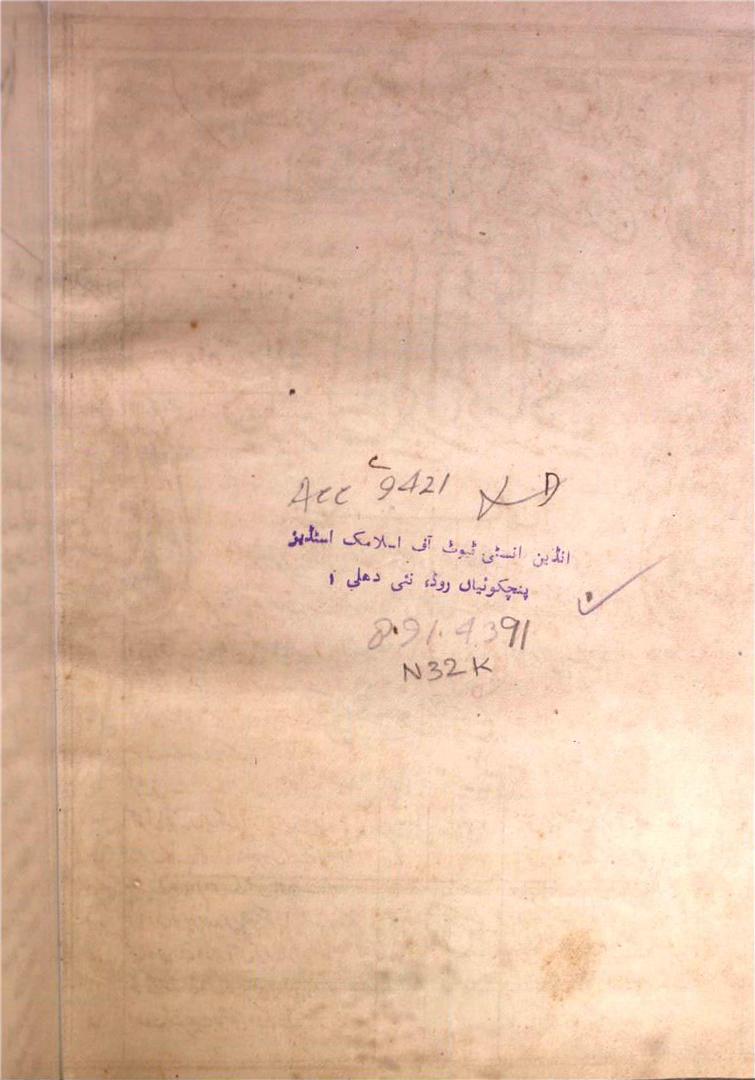 Acc 9421
انڈین انسٹی ٹیوٹ آف اسلامک اسٹڈیز
پنچکوئیاں روڈ، نئی دھلی ۱
891.4391
N32K